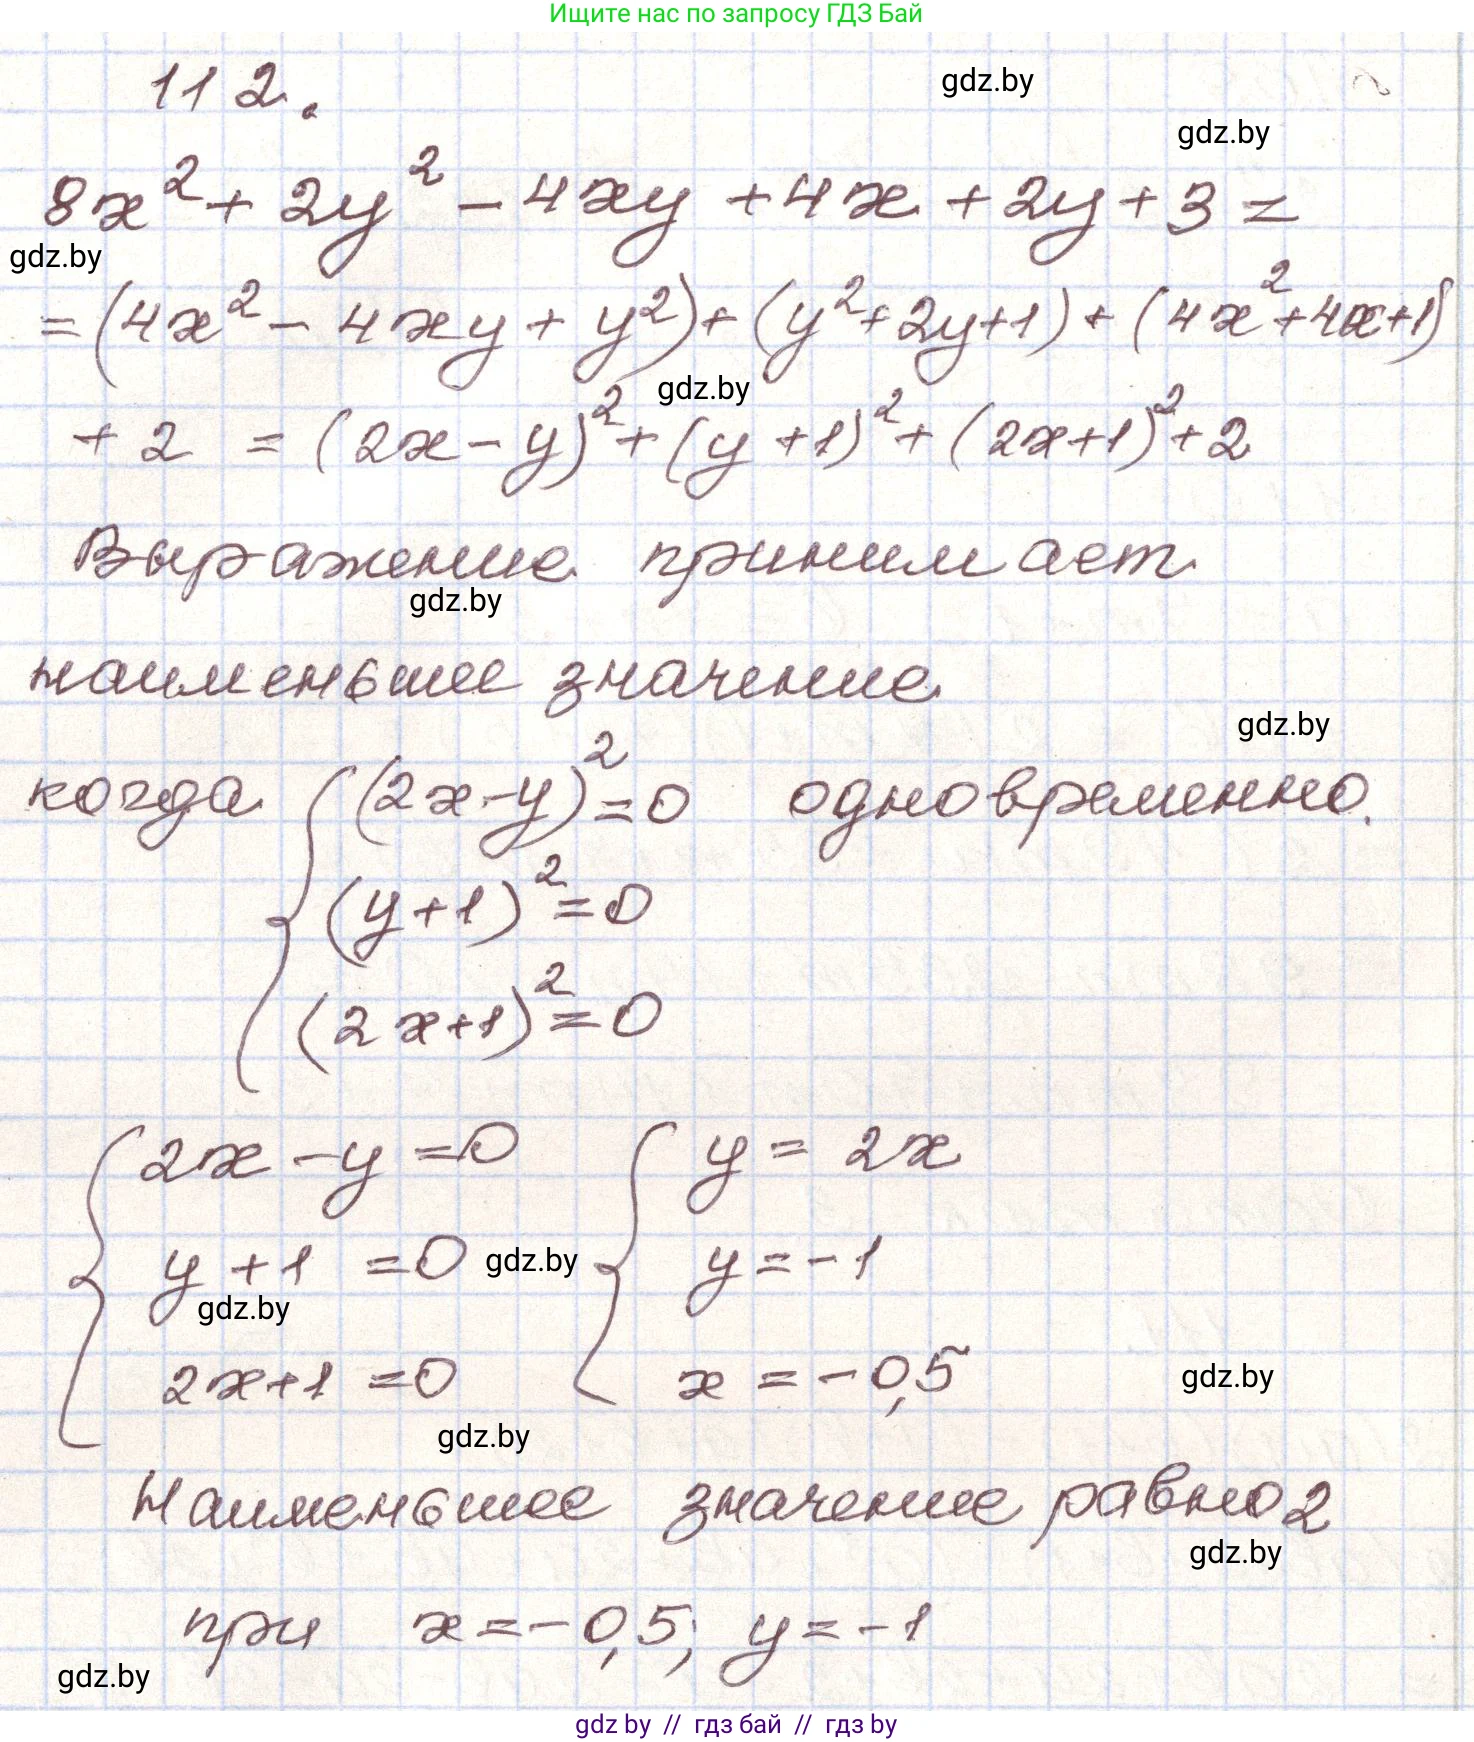 Ищите нас по запросу ГДЗ Бай
112.
gdz.by
gdz.by
8x² + 2y² - 4xy + 4x + 2y + 3 =
gdz.by
= (4x² - 4xy + y²) + (y² + 2y + 1) + (4x² + 4x + 1)
gdz.by
+ 2 = (2x - y)² + (y + 1)² + (2x + 1)² + 2
Выражение принимает
gdz.by
наименьшее значение
gdz.by
когда { (2x - y)² = 0 одновременно.
(y + 1)² = 0
(2x + 1)² = 0
{ 2x - y = 0 { y = 2x
y + 1 = 0 gdz.by y = -1
gdz.by
2x + 1 = 0 x = -0,5
gdz.by
gdz.by
Наименьшее значение равно 2
gdz.by
при x = -0,5; y = -1
gdz.by
gdz by // гдз бай // гдз by